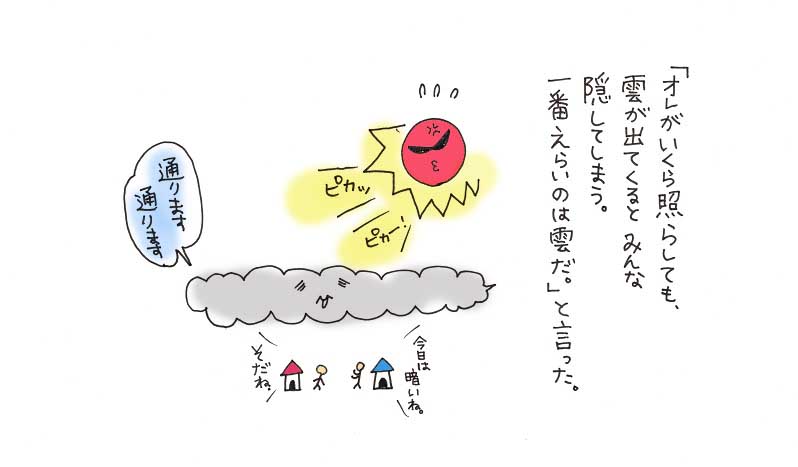 「オレがいくら照らしても、
雲が出てくるとみんな
隠してしまう。
一番えらいのは雲だ。」と言った。
ピカッ
ピカー!
通ります
通ります
今日は
暗いね。
そだね。